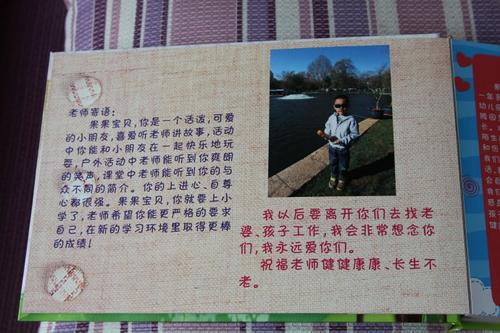 老师寄语:
果果宝贝,你是一个活泼,可爱
的小朋友,喜爱听老师讲故事,活动
中你能和小朋友在一起快乐地玩
耍,户外活动中老师能听到你爽朗
的笑声,课堂中老师能听到你的与
众不同的简介。你的上进心、自尊
心都很强。果果宝贝,你就要上小
学了,老师希望你能更严格的要求
自己,在新的学习环境里取得更棒
的成绩!
我以后要离开你们去找老
婆、孩子工作,我会非常想念你
们,我永远爱你们。
祝福老师健健康康、长生不
老。